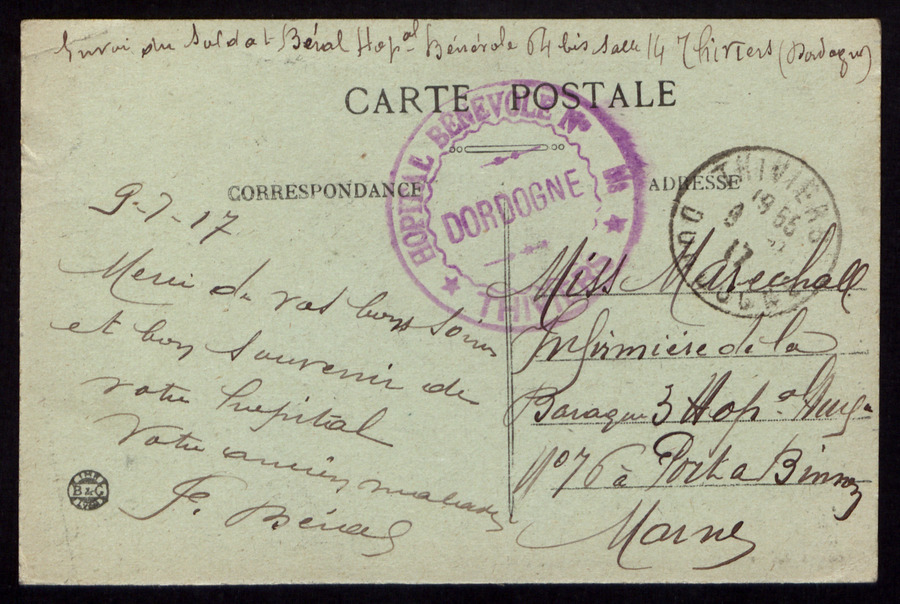 Envoi du Soldat Béral Hopal Bénévole 64 bis Salle 14 Thiviers (Dordogne)
CARTE POSTALE
HOPITAL BENEVOLE No
DORDOGNE
THIVIERS
CORRESPONDANCE
ADRESSE
THIVIERS
DORDOGNE
9-7-17
Merci de vos bons soins
et bon souvenir de
votre hopital
Votre ancien malade
Béral
Miss Marechall
Infirmière de la
Baraque 3 Hop
No 76 à Port a Binson
Marne
B & C